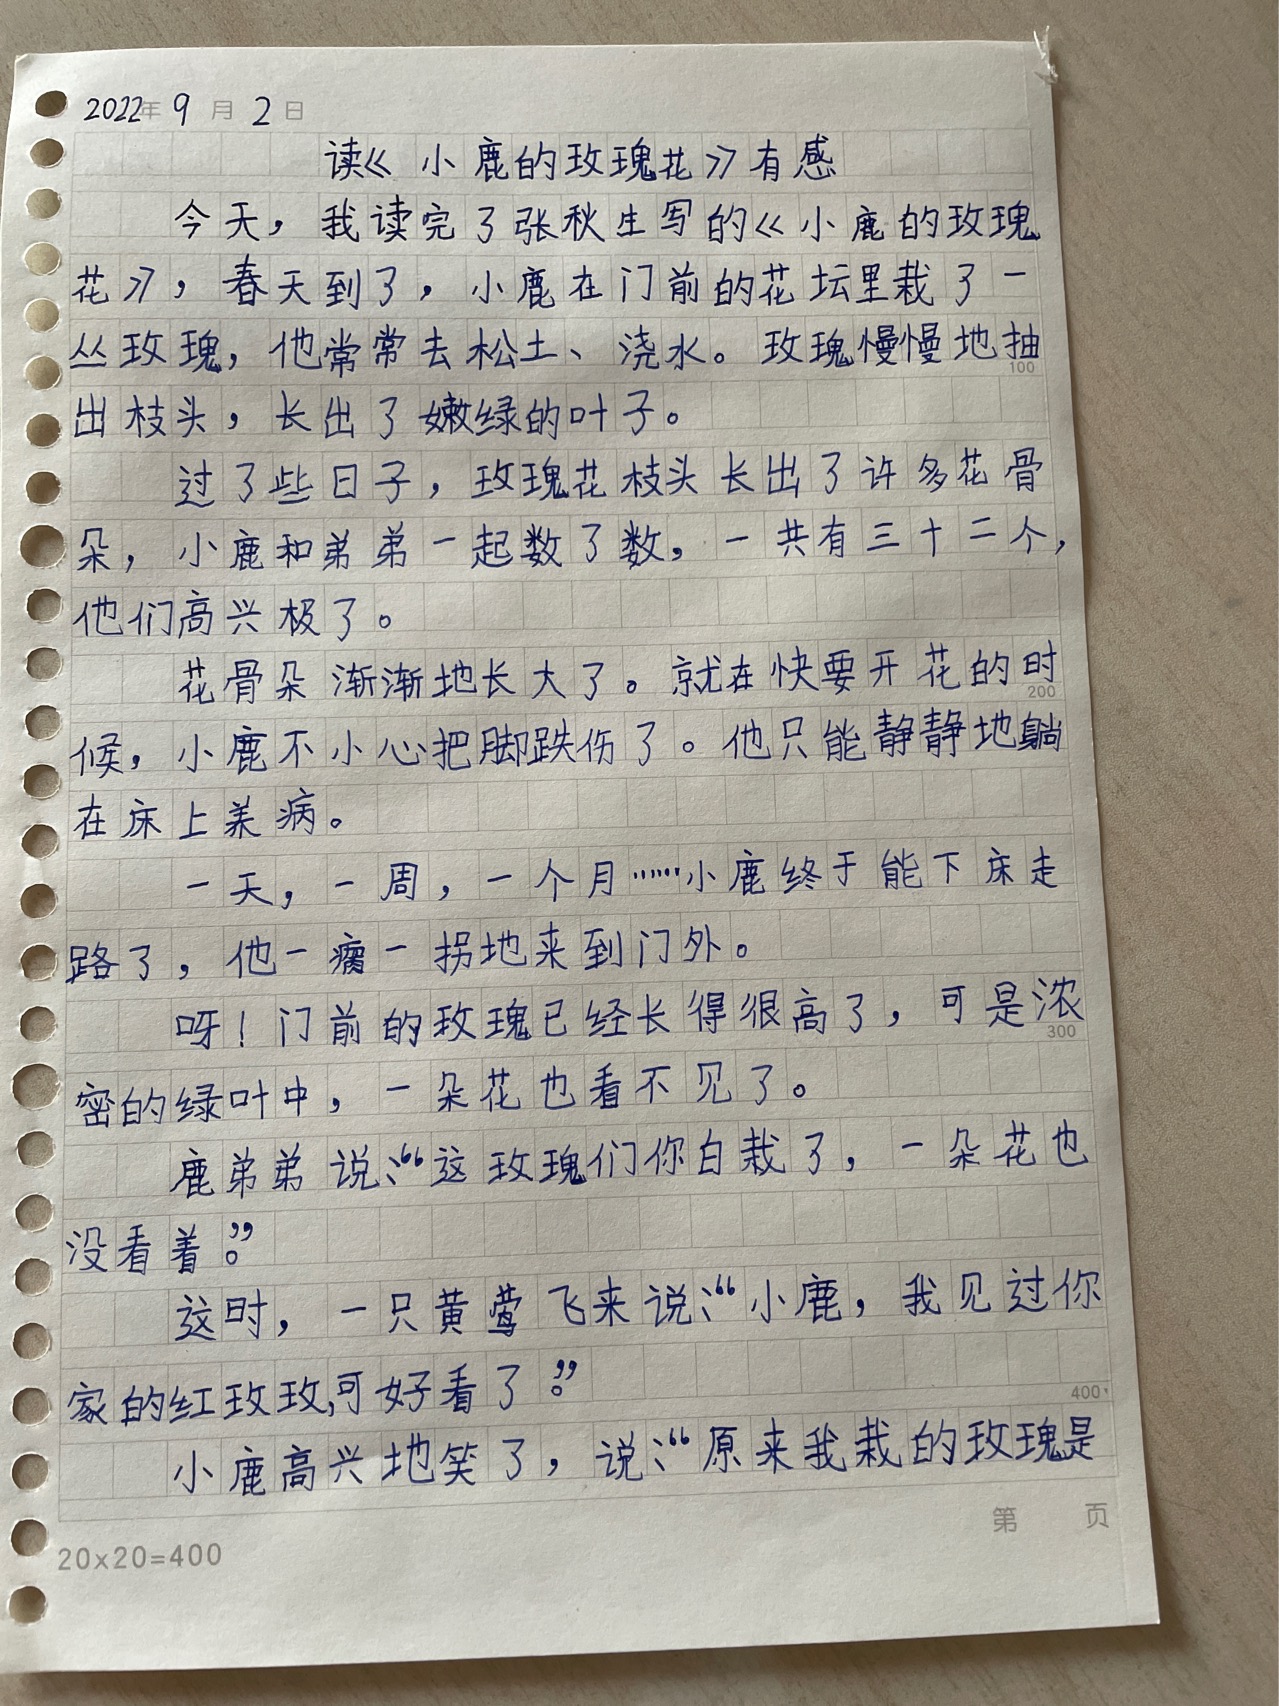 2022年9月2日
读《小鹿的玫瑰花》有感
今天，我读完了张秋生写的《小鹿的玫瑰
花》，春天到了，小鹿在门前的花坛里栽了一
丛玫瑰，他常常去松土、浇水。玫瑰慢慢地抽
100
出枝头，长出了嫩绿的叶子。
过了些日子，玫瑰花枝头长出了许多花骨
朵，小鹿和弟弟一起数了数，一共有三十二个，
他们高兴极了。
花骨朵渐渐地长大了。就在快要开花的时
200
候，小鹿不小心把脚跌伤了。他只能静静地躺
在床上养病。
一天，一周，一个月……小鹿终于能下床走
路了，他一瘸一拐地来到门外。
呀！门前的玫瑰已经长得很高了，可是浓
300
密的绿叶中，一朵花也看不见了。
鹿弟弟说：“这玫瑰们你白栽了，一朵花也
没看着。”
这时，一只黄莺飞来说：“小鹿，我见过你
家的红玫玫，可好看了。”
400
小鹿高兴地笑了，说：“原来我栽的玫瑰是
第 页
20x20=400